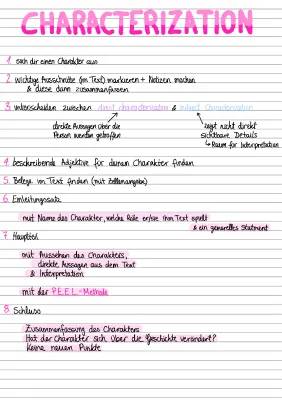 CHARACTERIZATION
1. such dir einen Charakter aus
2. wichtige Ausschnitte (im Text) markieren + Notizen machen
& diese dann zusammenfassen
3. unterscheiden zwischen direct characterization & indirect Characterization
direkte Aussagen über die
Person werden getroffen
zeigt nicht direkt
sichtbare Details
↳ Raum für Interpretation
4. beschreibende Adjektive für deinen Charakter finden
5. Belege im Text finden (mit Zeilenangabe)
6. Einleitungssatz
mit Name des Charakter, welche Rolle er/sie im Text spielt
& ein generelles Statment
7. Hauptteil
mit Aussehen des Charakters,
direkte Aussagen aus dem Text
& Interpretation
mit der P.E.E.L-Methode
8. Schluss
Zusammenfassung des Charakters
Hat der Charakter sich über die Geschichte verändert?
Keine neuen Punkte